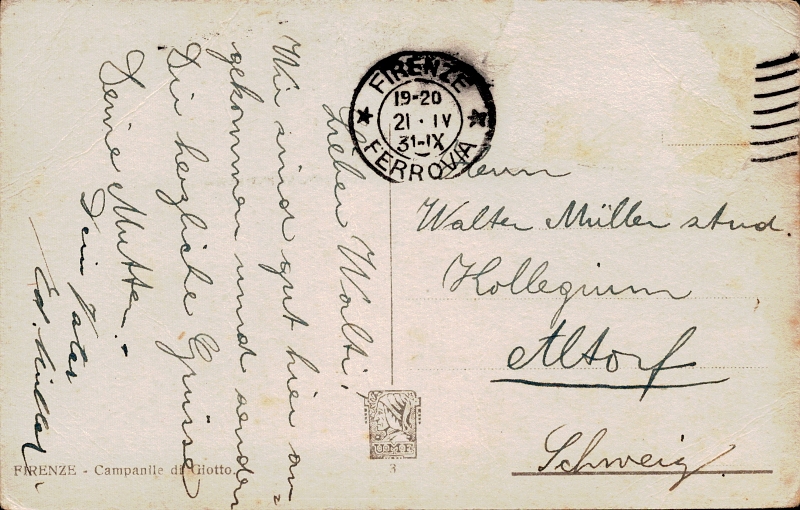 Lieber Walti!
Wir sind gut hier an-
gekommen und senden
Dir herzliche Grüsse
Deine Mutter.
Dein Vater
Ed. Müller.
FIRENZE
19-20
21 · IV
31-IX
FERROVIA
Herrn
Walter Müller stud.
Kollegium
Altorf
Schweiz.
U.M.F.
3
FIRENZE - Campanile di Giotto.